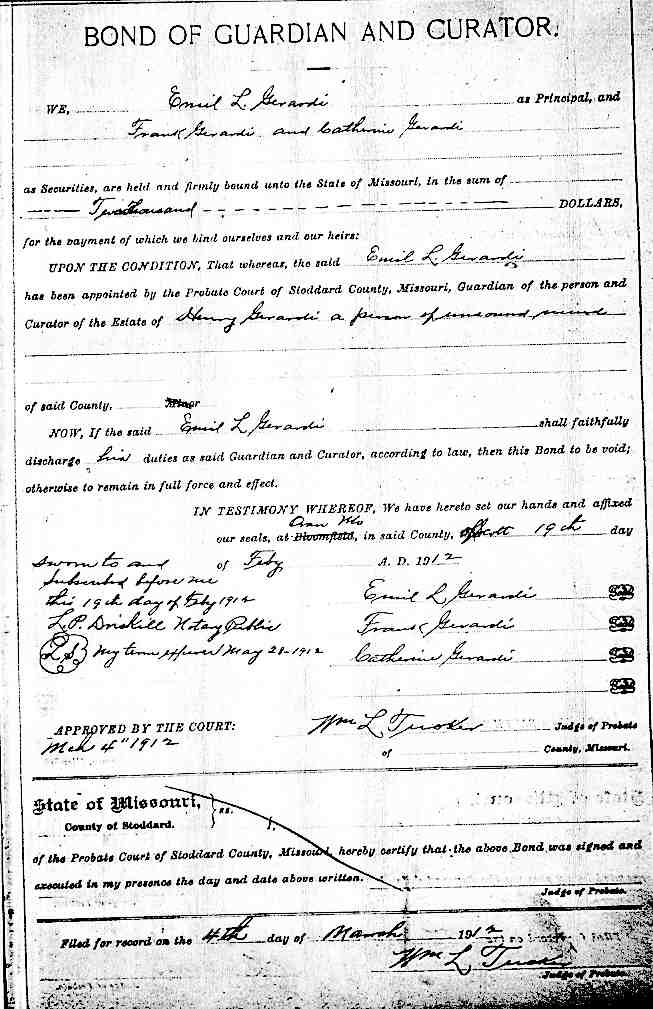 BOND OF GUARDIAN AND CURATOR.
WE, Emil L. Gerardi as Principal, and
Frank Gerardi and Catherine Gerardi
as Securities, are held and firmly bound unto the State of Missouri, in the sum of
Two thousand DOLLARS,
for the payment of which we bind ourselves and our heirs:
UPON THE CONDITION, That whereas, the said Emil L. Gerardi
has been appointed by the Probate Court of Stoddard County, Missouri, Guardian of the person and
Curator of the Estate of Henry Gerardi a person of unsound mind
of said County. Minor
NOW, If the said Emil L Gerardi shall faithfully
discharge his duties as said Guardian and Curator, according to law, then this Bond to be void;
otherwise to remain in full force and effect.
IN TESTIMONY WHEREOF, We have hereto set our hands and affixed
Oran Mo
our seals, at Bloomfield, in said County, of Scott 19th day
of Feby A. D. 1912
sworn to and
subscribed before me
this 19th day of Feby 1912
L.P. Driskill Notary Public
L.S. My term expires May 28-1912
Emil L Gerardi
Frank Gerardi
Catherine Gerardi
APPROVED BY THE COURT: Wm L Tucker Judge of Probate
Mch 4" 1912
of County, Missouri.
State of Missouri, } ss.
County of Stoddard.
I,
of the Probate Court of Stoddard County, Missouri, hereby certify that the above Bond was signed and
executed in my presence the day and date above written.
Judge of Probate.
Filed for record on the 4th day of March 1912
Wm L Tucker
Judge of Probate.